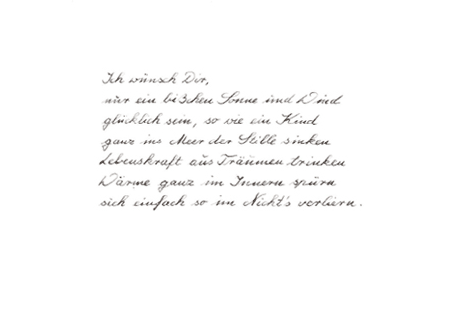 Ich wünsch Dir,
nur ein bißchen Sonne und Wind
glücklich sein, so wie ein Kind
ganz ins Meer der Stille sinken
Lebenskraft aus Träumen trinken
Wärme ganz im Innern spürn
sich einfach so im Nicht's verliern.